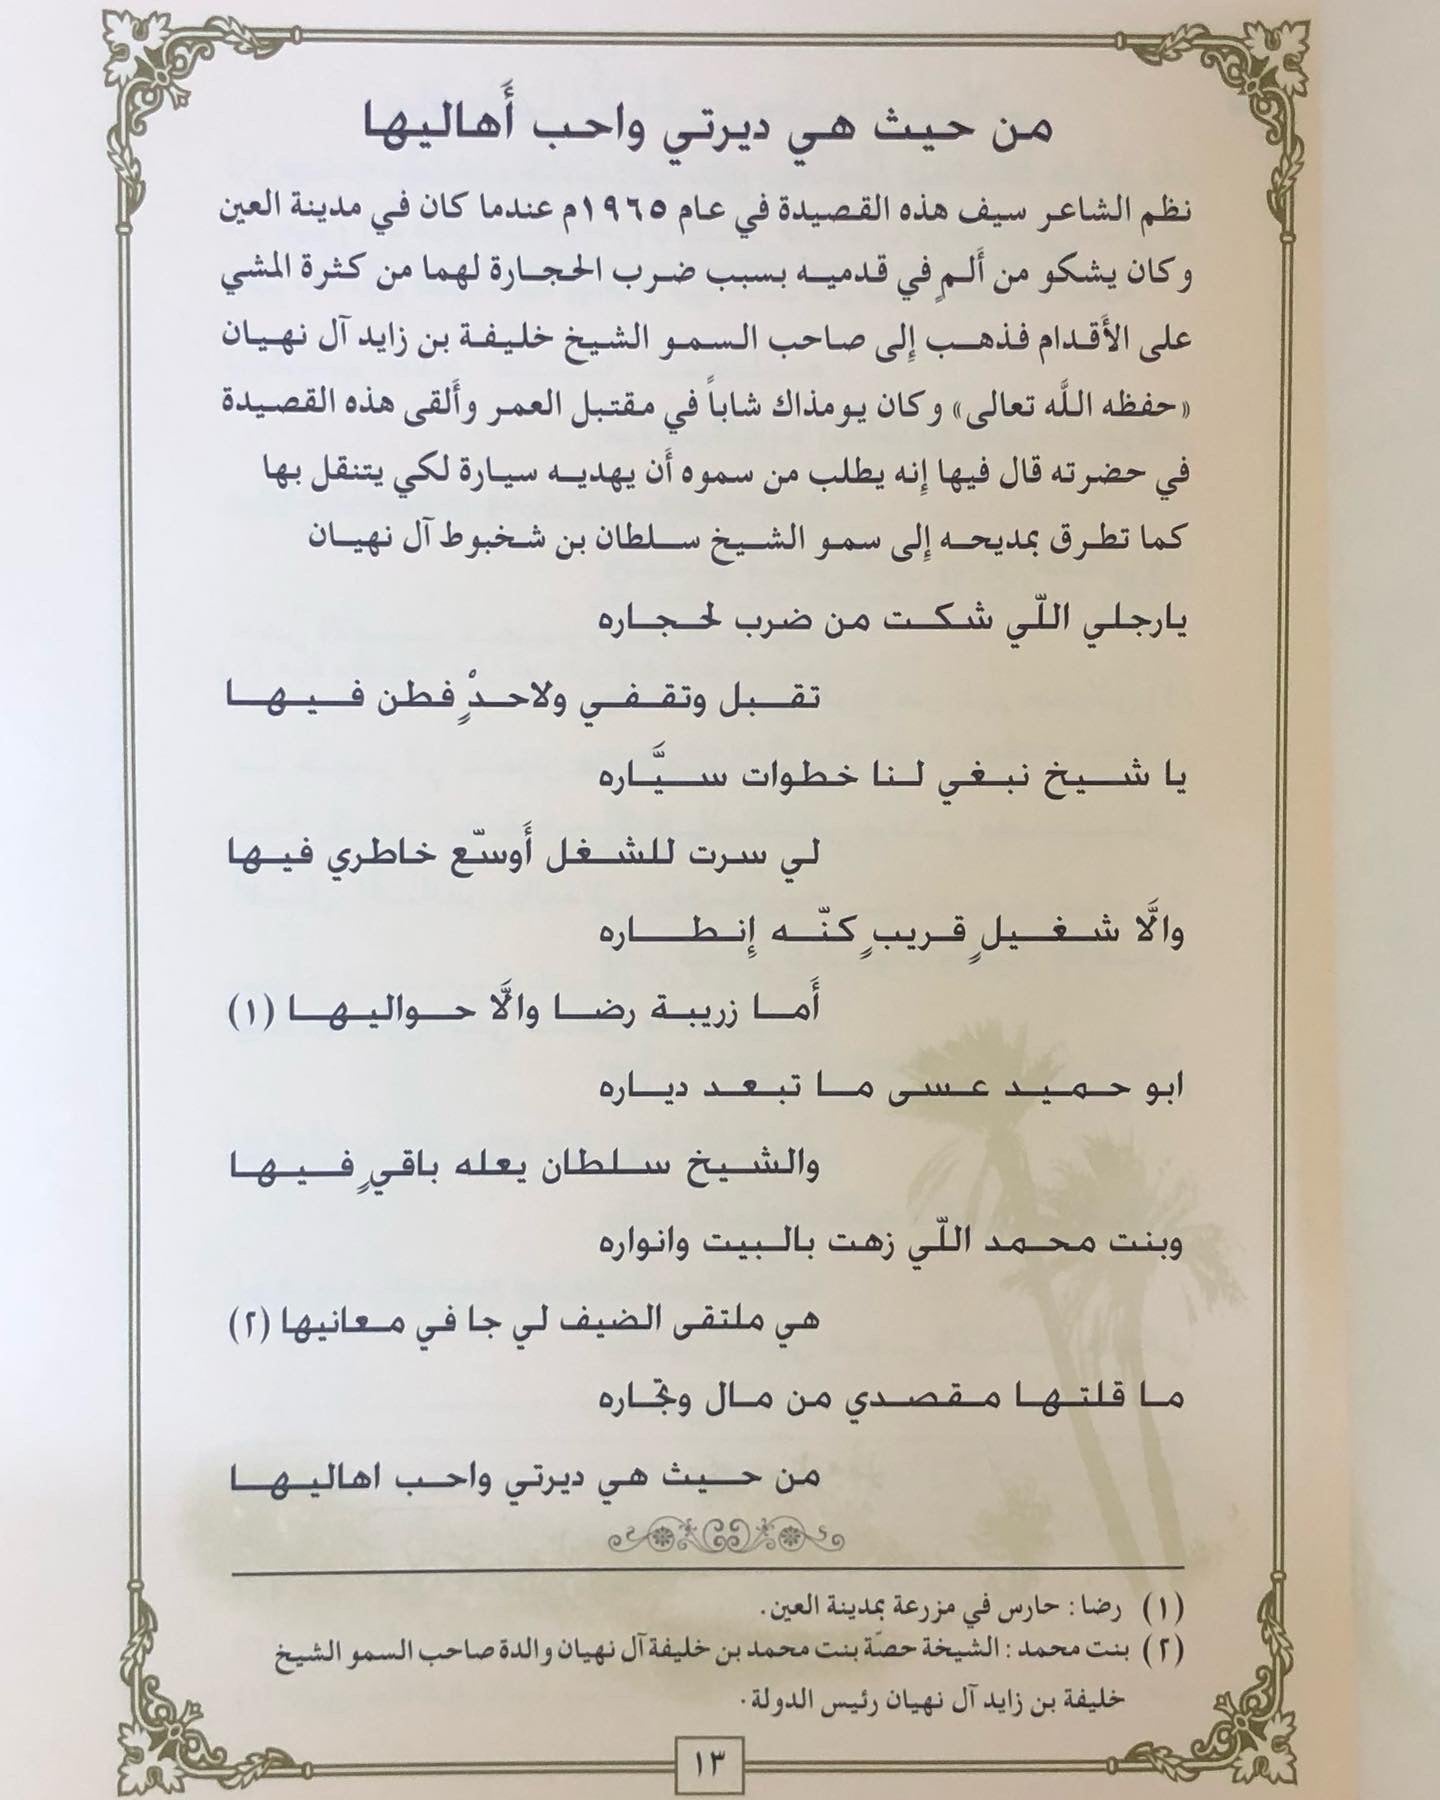 من حيث هي ديرتي واحب أَهاليها
نظم الشاعر سيف هذه القصيدة في عام ١٩٦٥م عندما كان في مدينة العين
وكان يشكو من أَلمٍ في قدميه بسبب ضرب الحجارة لهما من كثرة المشي
على الأَقدام فذهب إِلى صاحب السمو الشيخ خليفة بن زايد آل نهيان
«حفظه اللَّه تعالى» وكان يومذاك شاباً في مقتبل العمر وأَلقى هذه القصيدة
في حضرته قال فيها إِنه يطلب من سموه أَن يهديه سيارة لكي يتنقل بها
كما تطرق بمديحه إِلى سمو الشيخ سلطان بن شخبوط آل نهيان
يارجلي اللّي شكت من ضرب لحجاره
تقبل وتقفي ولاحدْ فطن فيها
يا شيخ نبغي لنا خطوات سيَّاره
لي سرت للشغل أَوسّع خاطري فيها
والَّا شغيلٍ قريبٍ كنّه إِنطاره
أَما زريبة رضا والَّا حواليها (١)
ابو حميد عسى ما تبعد دياره
والشيخ سلطان يعله باقيٍ فيها
وبنت محمد اللّي زهت بالبيت وانواره
هي ملتقى الضيف لي جا في معانيها (٢)
ما قلتها مقصدي من مال وتجاره
من حيث هي ديرتي واحب اهاليها
(١) رضا : حارس في مزرعة بمدينة العين.
(٢) بنت محمد : الشيخة حصّة بنت محمد بن خليفة آل نهيان والدة صاحب السمو الشيخ
خليفة بن زايد آل نهيان رئيس الدولة.
١٣